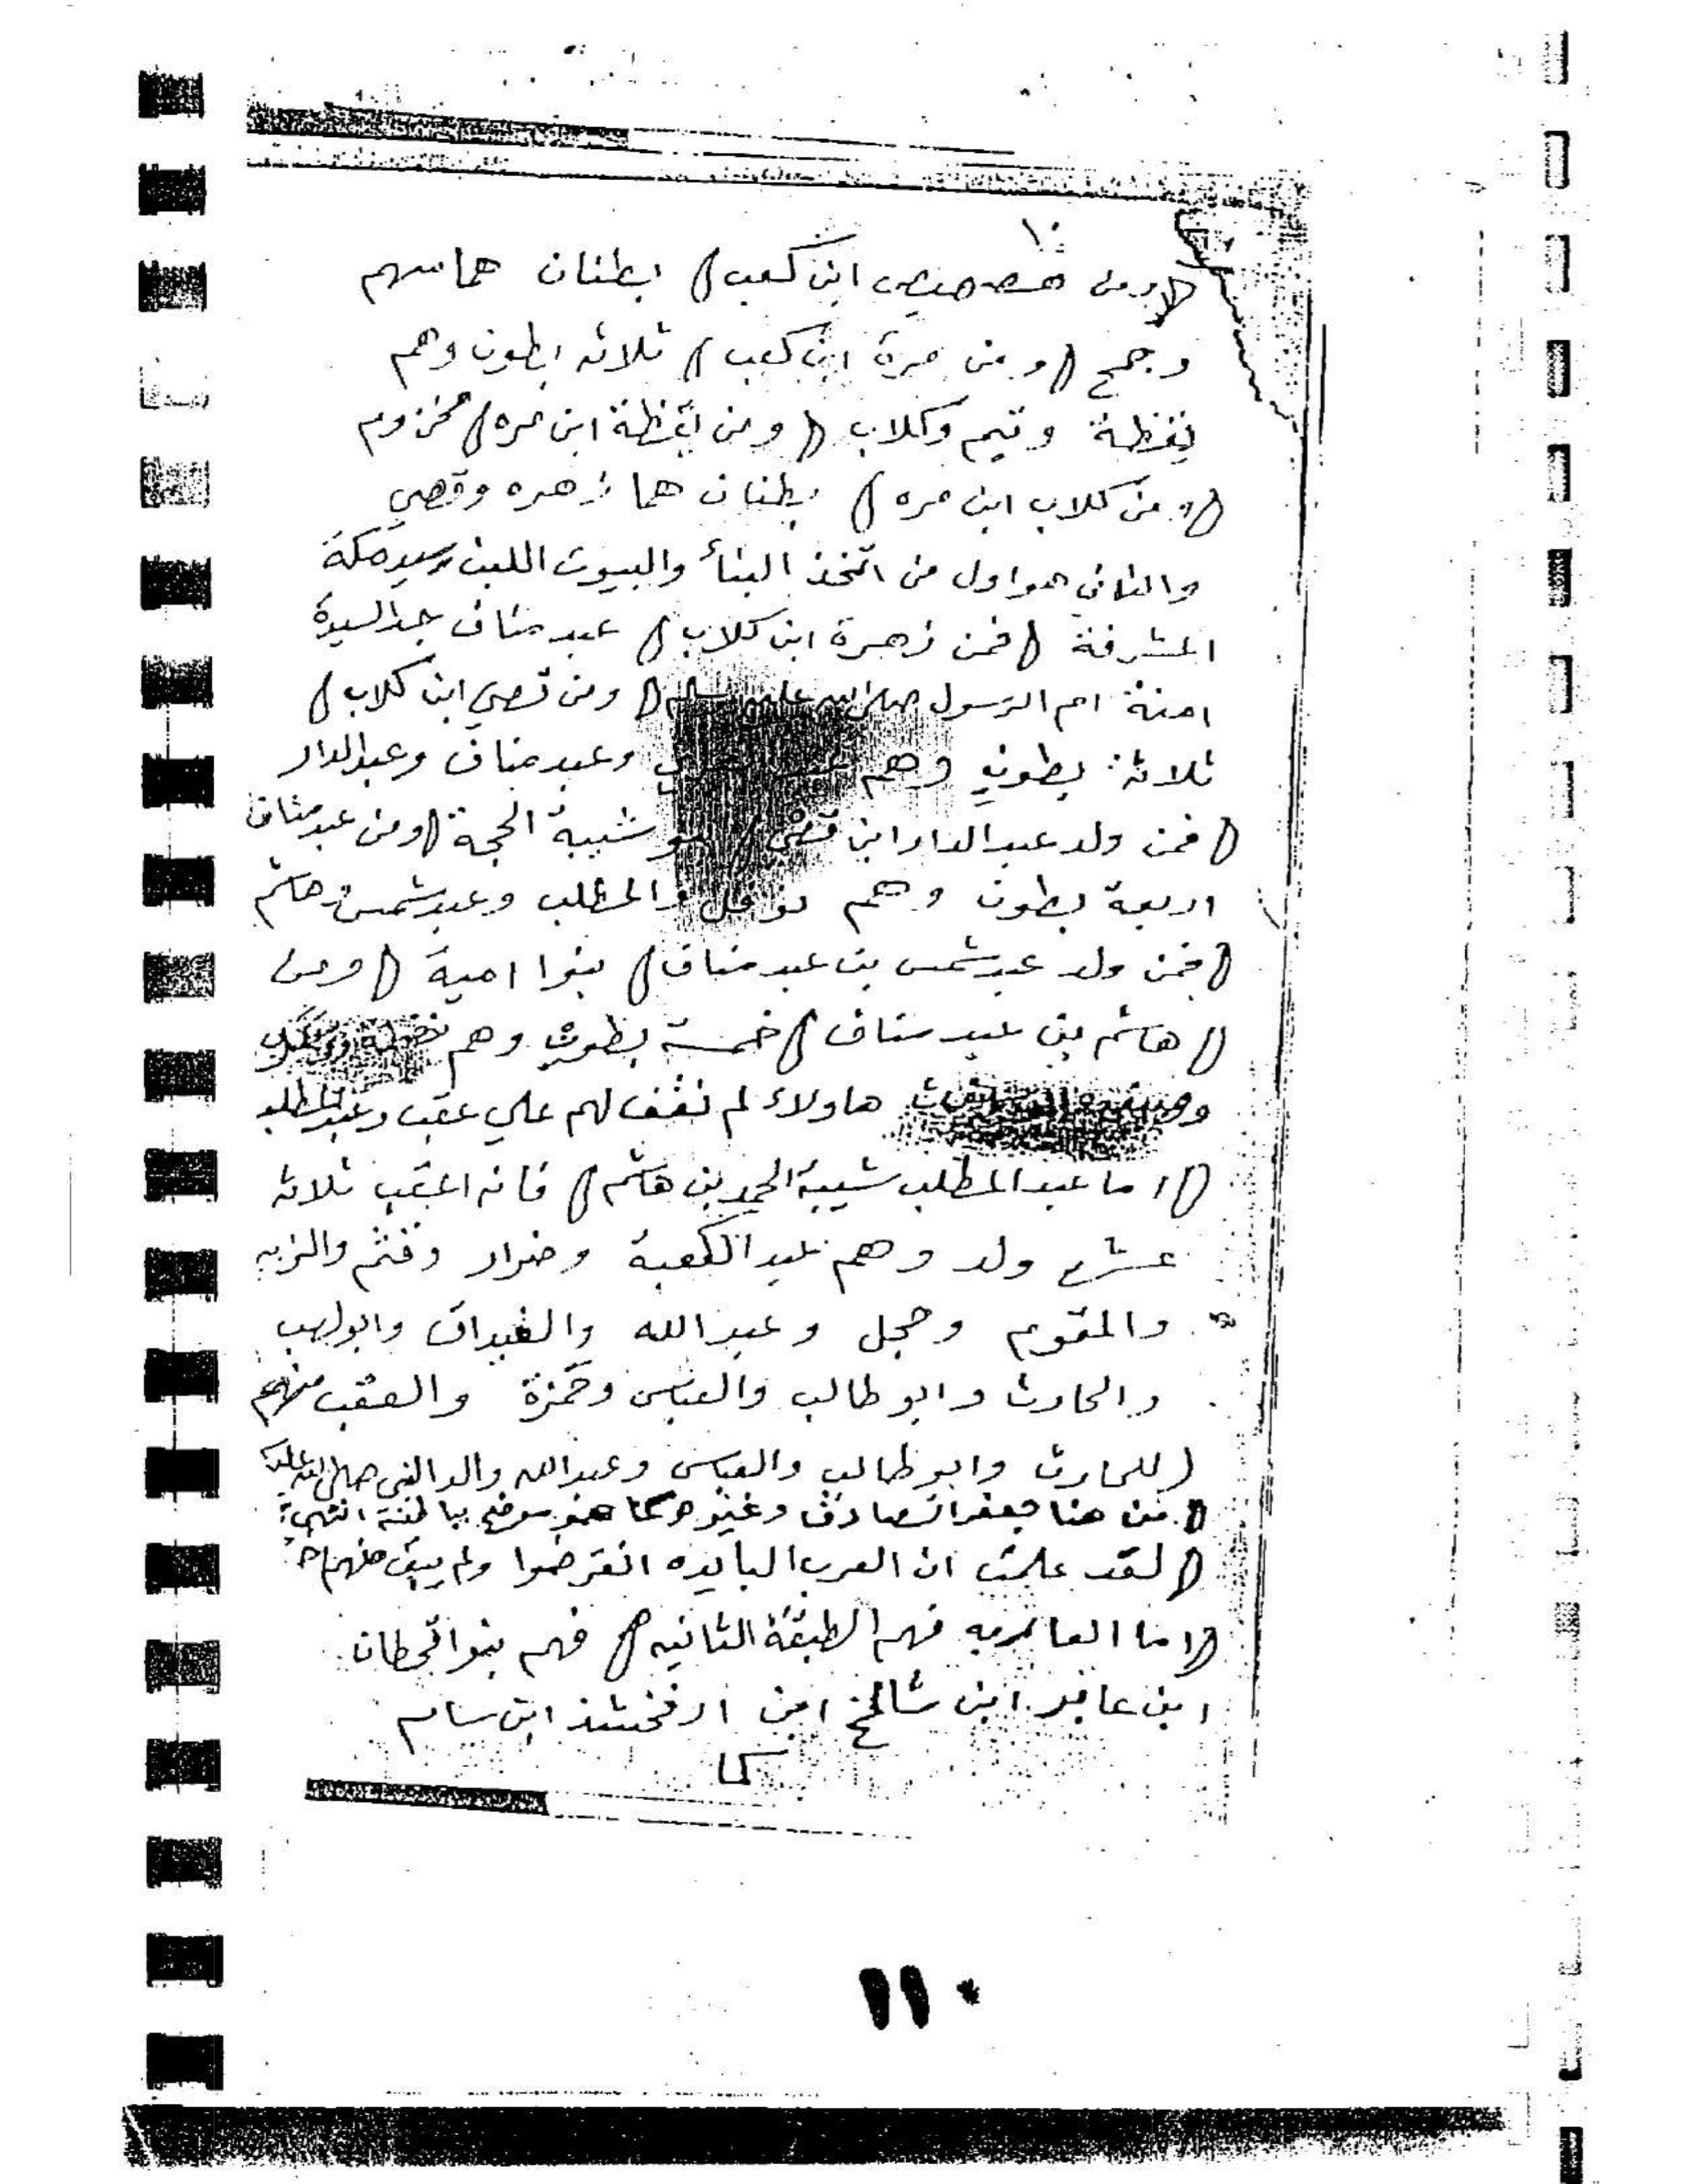 ١٠
(ومن هصهيص ابن كعب) بطنان هما سهم
وجمح (ومن مرة ابن كعب) ثلاثه ابطون وهم
يقظة وتيم وكلاب (ومن يقظة ابن مره) مخزوم
(ومن كلاب ابن مره) بطنان هما زهره وقصي
والثاني هو اول من اتخذ البناء والبيوت اللبن سيد مكة
المشرفة (فمن زهرة ابن كلاب) عبد مناف جد السيدة
امنة ام الرسول صلى الله عليه وسلم (ومن قصي ابن كلاب)
ثلاثة بطون وهم وعبد مناف وعبد الدار
(فمن ولد عبد الدار ابن قصي) شيبة الحجة (ومن عبد مناف
اربعة بطون وهم نوفل والمطلب وعبد شمس وهاشم
(فمن ولد عبد شمس بن عبد مناف) بنوا امية (ومن
(هاشم بن عبد مناف) خمسة بطون وهم
هاولاء لم نقف لهم علي عقب وعبد المطلب
(اما عبد المطلب شيبة الحمد بن هاشم) فانه اعقب ثلاثه
عشر ولد وهم عبد الكعبة وضرار وقثم والزبير
والمقوم وحجل وعبد الله والغيداق وابو لهب
والحارث وابو طالب والعباس وحمزة والعقب منهم
(للحارث وابو طالب والعباس وعبد الله والد النبي صلى الله عليه
(من هنا جعفر الصادق وغيره كما هو موضح
(لقد علمت ان العرب البايده انقرضوا ولم يبق منهم احد
(اما العاربه فهم الطبقة الثانيه) فهم بنوا قحطان
ابن عابر ابن شالخ ابن ارفخشذ ابن سام
كما
١١٠